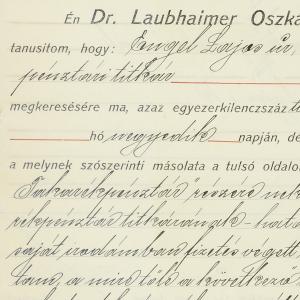 Én Dr. Laubhaimer Oszká
tanusitom, hogy: Engel Lajos úr
pénztári titkár
megkeresésére ma, azaz egyezerkilenczszáz
hó negyedik napján, dé
a melynek szószerinti másolata a tulsó oldalo
Takarékpénztár részére
rékpénztár titkárának - hat
saját irodámban fizetés végett
tam, a mire tőle a következő